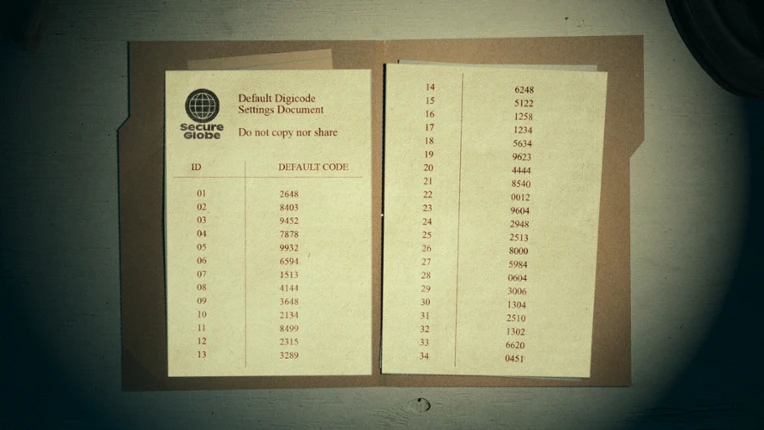 Secure
Globe
Default Digicode
Settings Document
Do not copy nor share
ID DEFAULT CODE
01 2648
02 8403
03 9452
04 7878
05 9932
06 6594
07 1513
08 4144
09 3648
10 2134
11 8499
12 2315
13 3289
14 6248
15 5122
16 1258
17 1234
18 5634
19 9623
20 4444
21 8540
22 0012
23 9604
24 2948
25 2513
26 8000
27 5984
28 0604
29 3006
30 1304
31 2510
32 1302
33 6620
34 0451